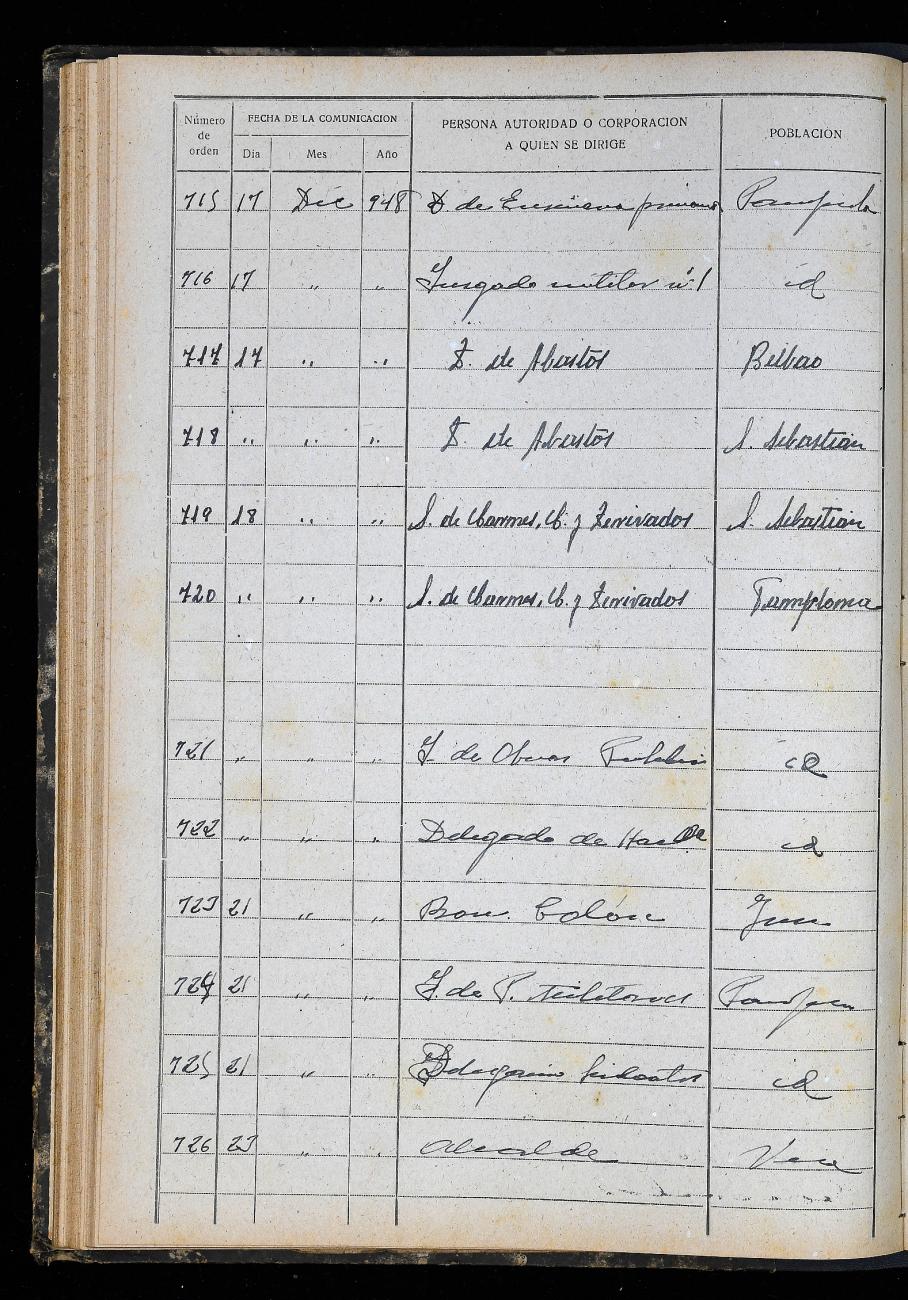 Número de orden FECHA DE LA COMUNICACION PERSONA AUTORIDAD O CORPORACION A QUIEN SE DIRIGE POBLACIÓN
Dia Mes Año
715 17 Dic 948 D de Enseñanza primaria Pamplona
716 17 " " Juzgado militar nº 1 id
717 17 " " D. de Abastos Bilbao
718 " " " D. de Abastos S. Sebastian
719 18 " " S. de Carnes, C. y Derivados S. Sebastian
720 " " " S. de Carnes, C. y Derivados Pamplona
721 " " " J. de Obras Publicas id
722 " " " Delegado de Hacda id
723 21 " " Ban. Colón Irun
724 21 " " J. de P. Pamplona
725 21 " " id
726 23 " " Alcalde Vera